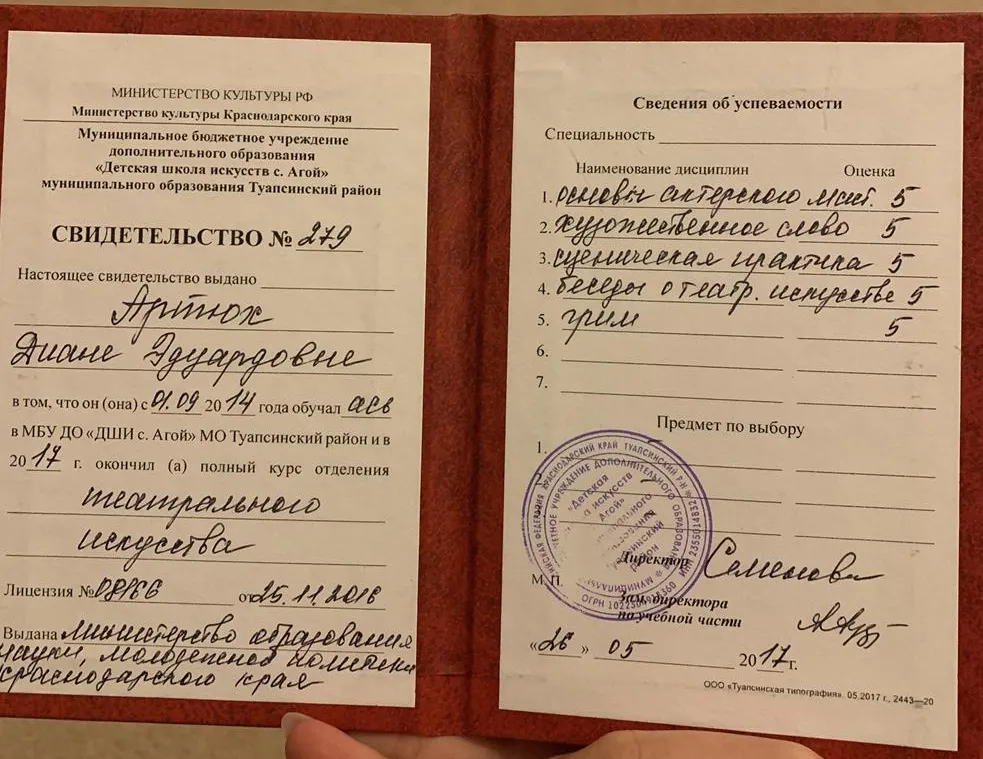 МИНИСТЕРСТВО КУЛЬТУРЫ РФ
Министерство культуры Краснодарского края
Муниципальное бюджетное учреждение
дополнительного образования
«Детская школа искусств с. Агой»
муниципального образования Туапсинский район
СВИДЕТЕЛЬСТВО № 279
Настоящее свидетельство выдано
Артюх
Диане Эдуардовне
в том, что он (она) с 01.09 2014 года обучал ась
в МБУ ДО «ДШИ с. Агой» МО Туапсинский район и в
2017 г. окончил (а) полный курс отделения
театрального
искусства
Лицензия № 08166 от 25.11.2016
Выдана Министерство образования
науки, молодежной политики
Краснодарского края
Сведения об успеваемости
Специальность
Наименование дисциплин Оценка
1. основы актерского маст. 5
2. художественное слово 5
3. сценическая практика 5
4. беседы о театр. искусстве 5
5. грим 5
6.
7.
Предмет по выбору
1.
КРАСНОДАРСКИЙ КРАЙ ТУАПСИНСКИЙ Р-Н
УЧРЕЖДЕНИЕ ДОПОЛНИТЕЛЬНОГО ОБРАЗОВАНИЯ
«Детская
искусств
Агой»
Туапсинский
район
ИНН 2355014832
ОГРН
Директор Семенова
М. П.
Зам. директора
по учебной части
«26» 05 2017 г.
ООО «Туапсинская типография». 05.2017 г., 2443—20